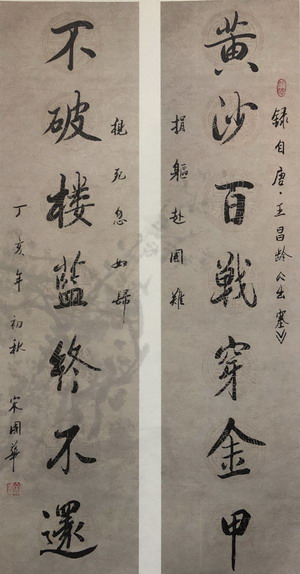 録自唐·王昌龄《出塞》
黄沙百戦穿金甲
捐軀赴國難
視死忽如歸
不破楼藍终不還
丁亥年初秋 宋國華